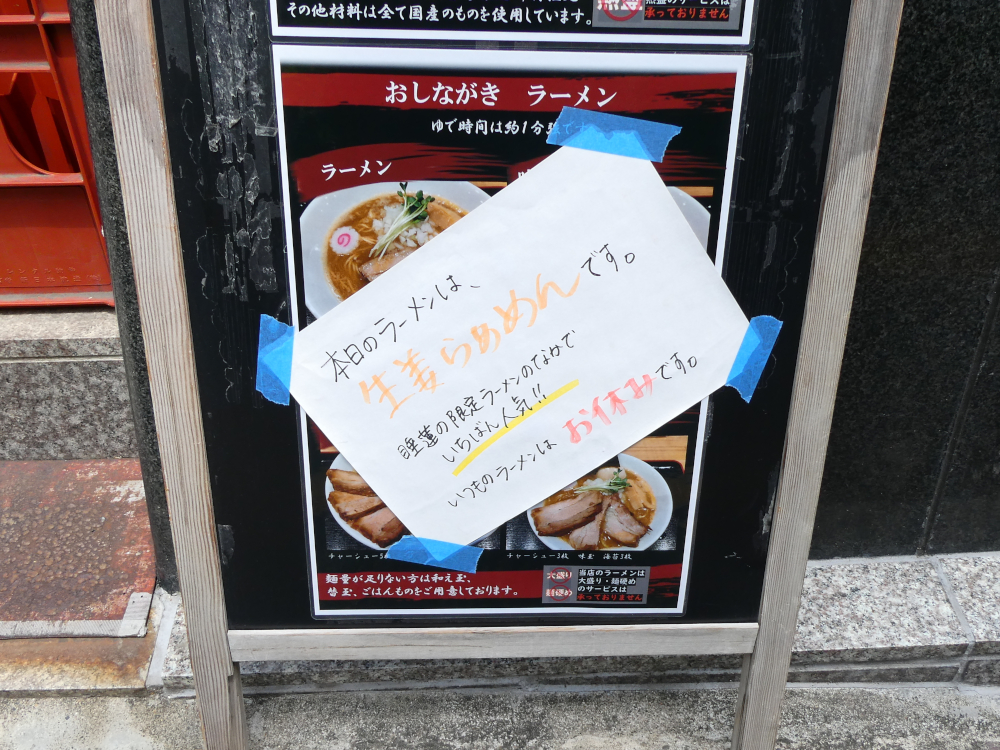 その他材料は全て国産のものを使用しています。
承っておりません
おしながき ラーメン
ゆで時間は約1分強です
ラーメン
本日のラーメンは、
生姜らぁめんです。
睡蓮の限定ラーメンのなかで
いちばん人気!!
いつものラーメンは お休みです。
チャーシュー5
チャーシュー3枚 味玉 海苔3枚
麺量が足りない方は和え玉、
替玉、ごはんものをご用意しております。
大盛り
麺硬め
当店のラーメンは
大盛り・麺硬め
のサービスは
承っておりません